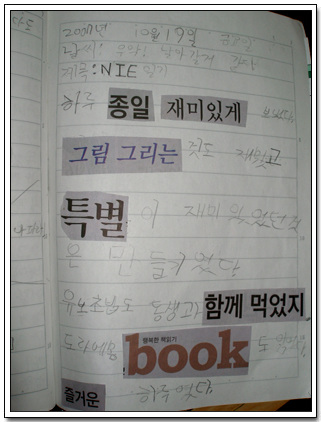 2007년 10월 19일
날씨:
제목:NIE 일기
하루 종일 재미있게 보냈다
그림 그리는 것도 재밌고
특별이 재미 있었던 것
은 만들기 였다
유부초밥도 동생과 함께 먹었지
도라에몽 행복한 책읽기 book 도 읽
즐거운 하루였다